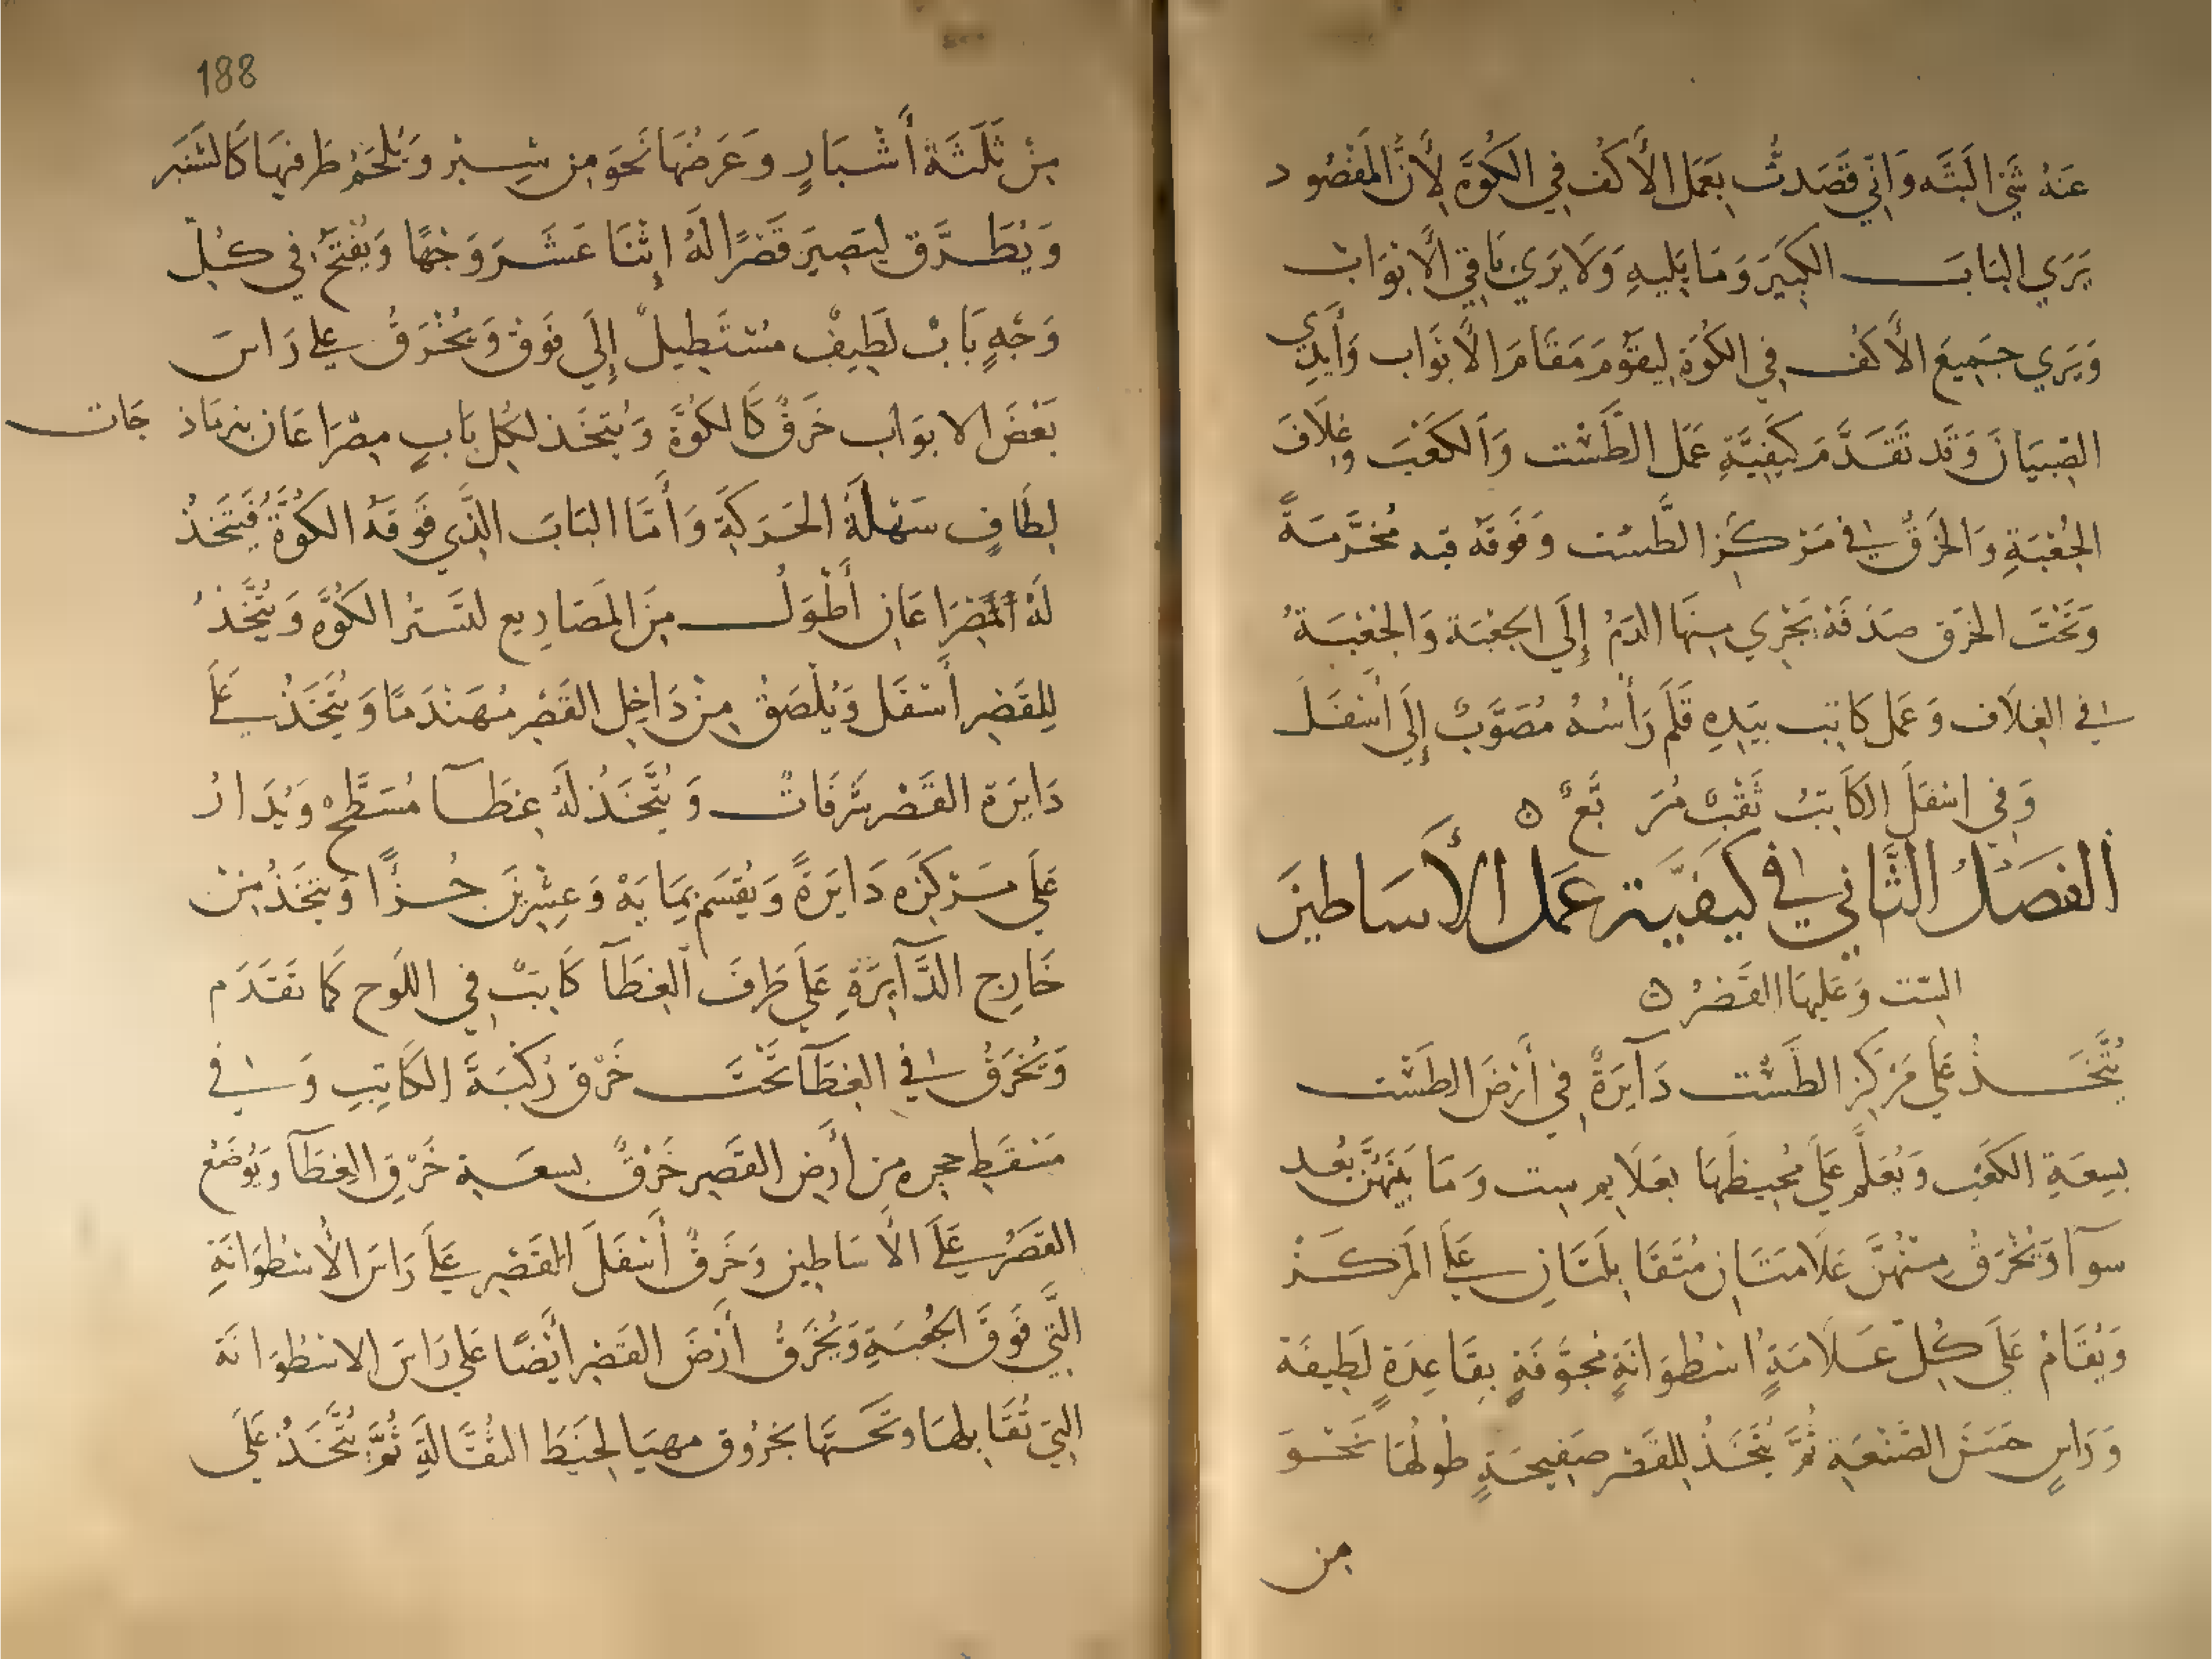 عَنهُ شَيْ البَتَّه وَاِنّي قَصَدتُ بِعَمَل الأكُف في الكُوَّةِ لِأَنَّ المَقْصُود
يَرَي البَابَ الكَبِيَر وَمَا يَلِيهِ وَلَا يَرَي بَاقِي الأَبْوَاب
وَيَرَي جَمِيعَ الأَكُف في الكُوَّةِ لِيقَوْمَ مَقَامَ الأبوَاب وَأَيْدِي
الصِبيَان وَقَد تَقَدَّمَ كَيفِيَّةِ عَمَل الطَّسْت وَالكَعْبَ وغِلَافَ
الجُعْبَةِ وَالخَرْقُ في مَرْكَزِ الطَّسْت وَفَوقَهُ قبه مُخَرَّمَةً
وَتَحْتَ الخَرَق صَدَفَة يَجْرِي مِنهَا الدَمُ إِلَي الجعْبَة وَالجعْبَةُ
في الغِلَاف وَعَمَل كَاتِب بيَدِهِ قَلَم رَأْسُهُ مُصَوَّبٌ إِلَي أَسْفَلَ
وَفِي اسْفَلَ الكَاتِبُ ثَقْبٌ مُرَ بَّعٌ ه
الفَصَلُ الثَّانِي في كَيفَيَّة عَمَل الأَسَاطين
السِّت وَعَليهَا القَصْرُ ه
يُتَّخَذُ عَلَي مَرْكَز الطَسْت دَآيَرَةً في أَرْضَ الطَسْت
بِسِعَةِ الكَعْب وَيُعَلَّم عَلَي مُحِيطَهَا بعَلَايم ست وَمَا بَيْنَهُنَّ بُعد
سوَآ وَتُخْرَقُ مِنْهُنَّ عَلَامَتَان مُتَقَابِلَتَانِ عَلَي المَركَز
وَيُقَامُ عَلَي كُلّ عَلَامَةٍ اسْطُوَانَةٍ مُجَوَّفَةٍ بِقَاعِدَةٍ لَطِيفَة
وَرَاسٍ حَسَن الصَنعَة ثمَّ يُتَّخَذُ لِلقَصْر صَفِيحَةٍ طُولُهَا نَحْوَ
مِن
188
مِنْ ثَلَثَةِ أَشْبَارٍ وَعَرضُهَا نَحَوَ مِن شِبْر وَيُلحَمُ طَرفيهَا كَالشَنبَر
وَيُطَرَّق لِيَصِيَر قَصْرًا لَهُ إِثْنَا عَشَر وَجْهًا وَيُفْتَحُ في كُلِّ
وَجْهٍ بَابٌ لَطِيفْ مُسْتَطِيلٌ إِلَي فَوْق وَيُخْرَقُ عَلي رَاسَ
بَعْضَ الابوَاب خَرقٌ كَالكُوَّة وَيُتَّخَذ لِكُل بَابٍ مِصْرَاعَان بنرمَاذ جَات
لِطَافٍ سَهْلَةَ الحَرَكَةِ وَأَمَّا البَابَ الذَّي فَوقَهُ الكُوَّةُ فَيُتَّخَذُ
لَهُ المِصْرَاعَانِ أَطْوَلُ مِنَ المَصَارِيع لتَستُر الكُوَّه وَيُتَّخَذُ
لِلقَصْرِ أَسْفَل وَيُلْصَقُ مِنْ دَاخِلِ القَصْر مُهَنْدَمًا وَيُتَّخَذُ عَلَي
دَايرَة القَصْر شَرفَاتٌ وَيُتَّخَذُ لَهُ غِطَآ مُسَطَّح وَيُدَارُ
عَلَي مَركَزه دَايَرةً وَيُقسَم بِمَايَة وَعِشْرِينَ جُزًّا وَيُتَّخَذُ مِنْ
خَارِج الدَّآيِرَةِ عَلَي طَرَفَ الغِطَآ كَاتِبْ في اللَوح كَمَا تَقَدَم
وَيُخْرَقُ في الغِطَآ تَحْتَ خَرْق رُكْبَةَ الكَاتِبِ وَفي
مَسْقَط حجره مِن أَرضِ القَصِر خَرْقٌ بسعَة خَرْقِ الغِطَآ وَيُوضَعُ
القَصَرُ عَلَي الأَسَاطِين وَخَرقٌ أَسْفَلَ القَصْرِ عَلَي رَاسَ الأُسْطوَانَةِ
الَّتِي فَوقَ الجُعبَةِ وَيُخْرَقُ أَرْضَ القَصْرِ ايْضًا عَلَي رَاسَ الاسْطُوَانَة
التِي تُقَابِلهَا وتَحَتَهَا بخرُوق مهيَا لِخَيَط الثُقَالَةِ ثُمَّ يُتَّخَذُ عَلَي